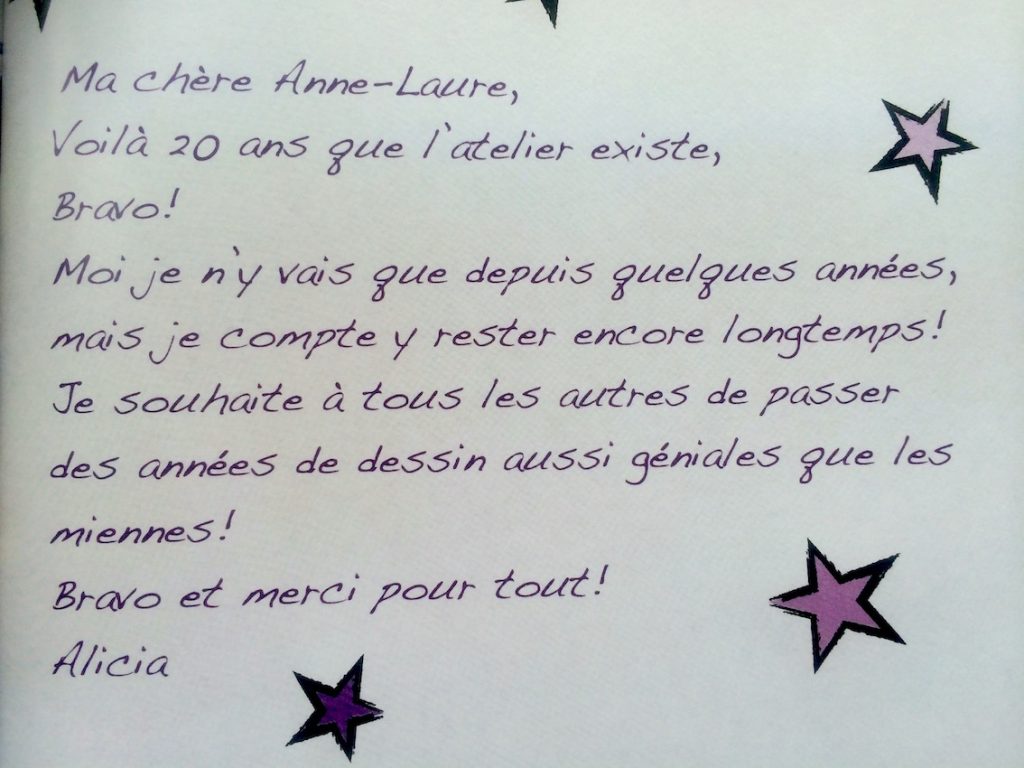 Ma chère Anne-Laure,
Voilà 20 ans que l'atelier existe,
Bravo!
Moi je n'y vais que depuis quelques années,
mais je compte y rester encore longtemps!
Je souhaite à tous les autres de passer
des années de dessin aussi géniales que les
miennes!
Bravo et merci pour tout!
Alicia